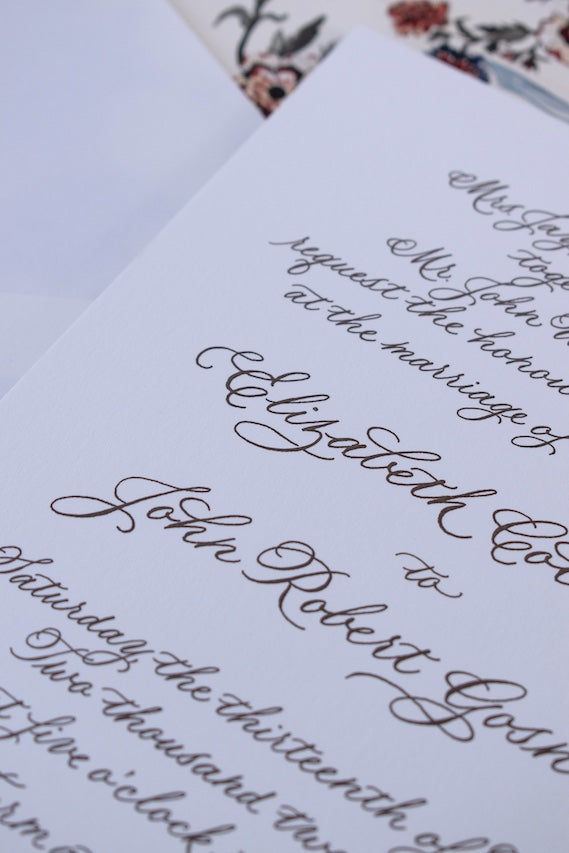 Mrs. Jay
toge
Mr. John
request the honou
at the marriage of
Elizabeth Co
to
John Robert Gosn
Saturday, the thirteenth of
Two thousand tw
t five o'clock